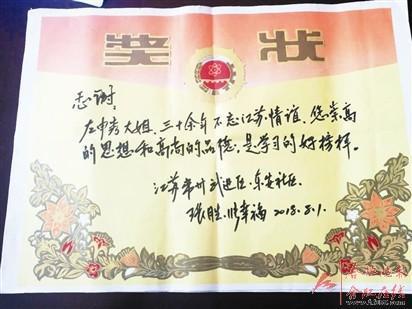 奖状
感谢:
左中秀大姐,三十余年不忘江苏情谊,您崇高
的思想和高尚的品德,是学习的好榜样。
江苏常州武进区
张胜 幸福 2018.8.1.
合江在线